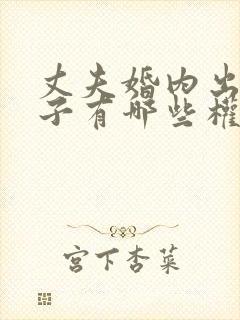 丈夫婚内出
子有哪些權
宫下杏菜